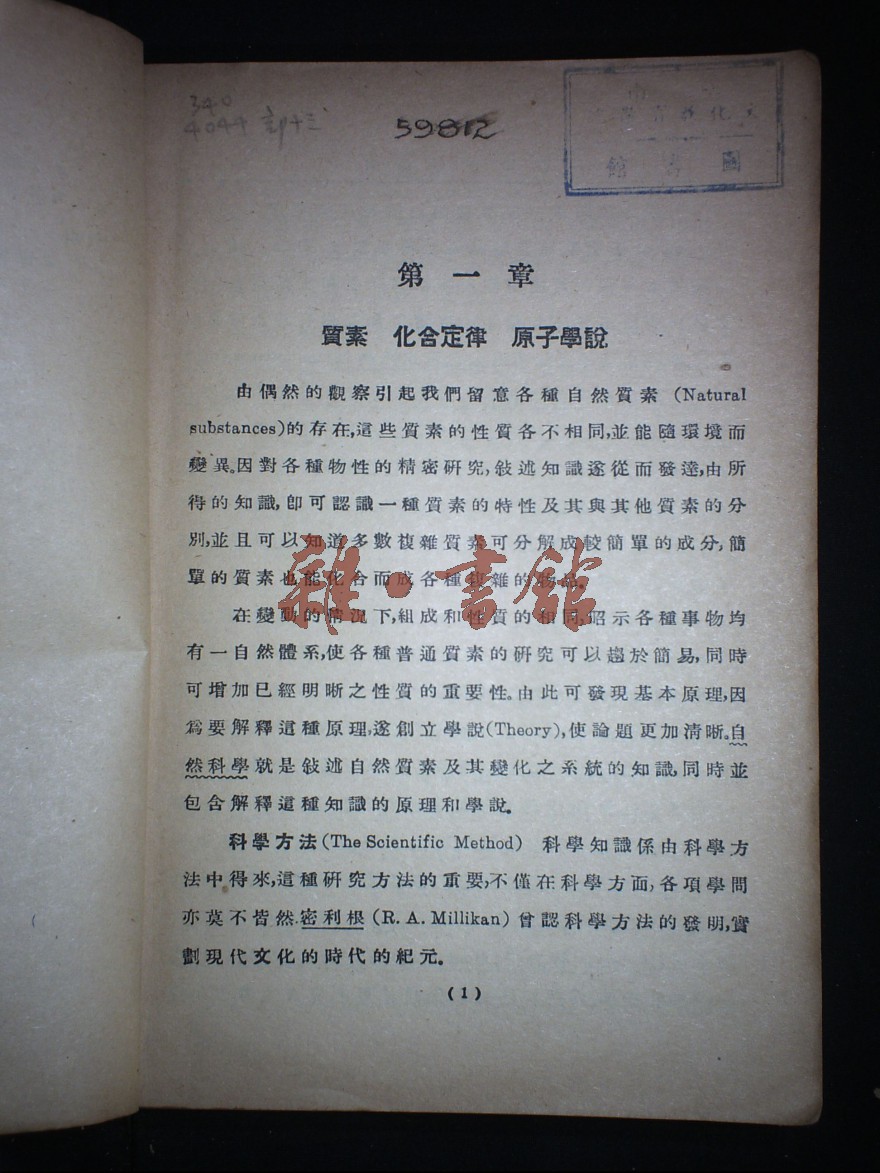 340
4044
59812
圖書館
第一章
質素 化合定律 原子學說
由偶然的觀察引起我們留意各種自然質素 (Natural
substances)的存在,這些質素的性質各不相同,並能隨環境而
變異。因對各種物性的精密研究,敍述知識遂從而發達,由所
得的知識,卽可認識一種質素的特性及其與其他質素的分
別,並且可以知道多數複雜質素可分解成較簡單的成分,簡
單的質素也能化合而成各種複雜的物品。
在變動的情況下,組成和性質的和同,昭示各種事物均
有一自然體系,使各種普通質素的研究可以趨於簡易,同時
可增加已經明晰之性質的重要性。由此可發現基本原理,因
爲要解釋這種原理,遂創立學說(Theory),使論題更加清晰。自
然科學就是敍述自然質素及其變化之系統的知識,同時並
包含解釋這種知識的原理和學說。
科學方法(The Scientific Method) 科學知識係由科學方
法中得來,這種研究方法的重要,不僅在科學方面,各項學問
亦莫不皆然.密利根 (R. A. Millikan) 曾認科學方法的發明,實
劃現代文化的時代的紀元。
(1)
雜·書館